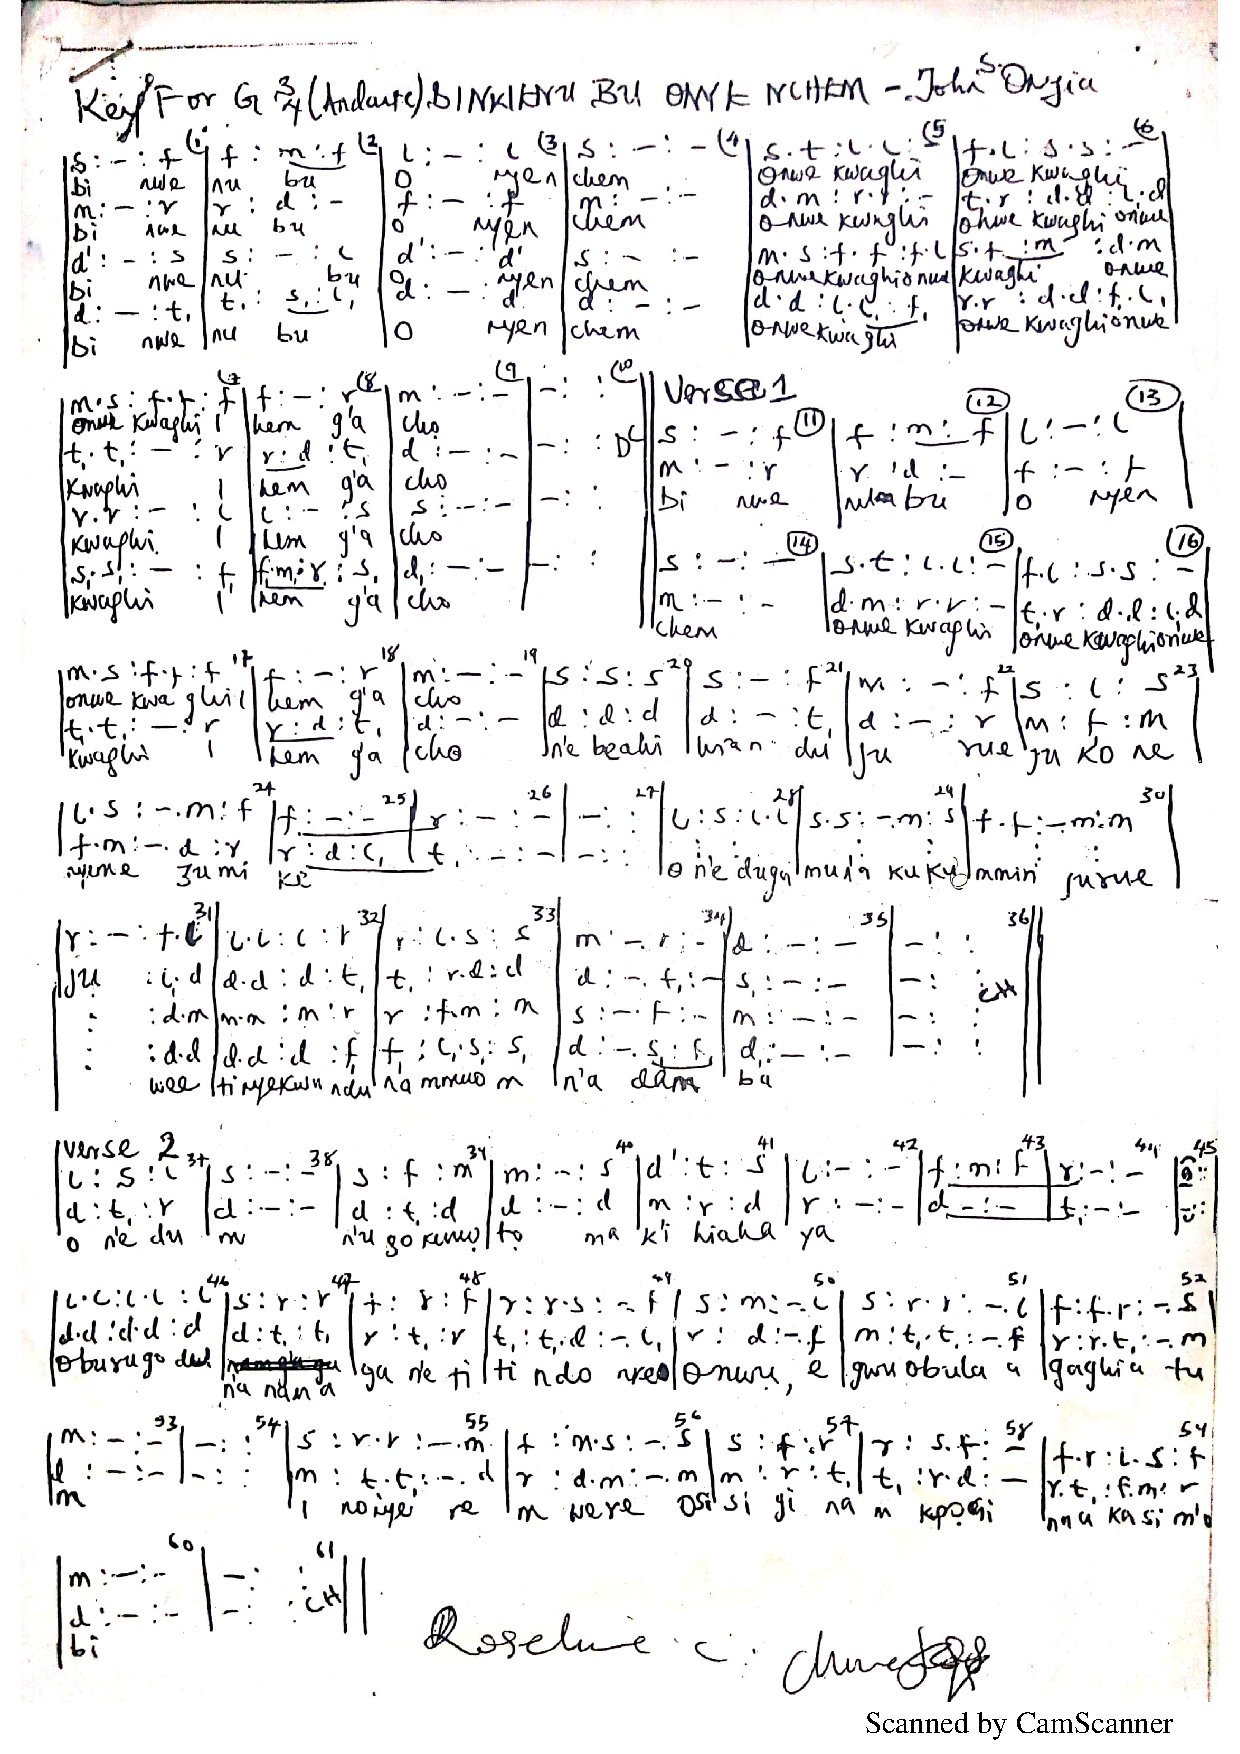 Key For G 3/4 (Andante) BINKIENU BU ONYE NCHEM - John S. Onyia
s : - : f (1 | f : m : f (2 | l : - : l (3 | s : - : - (4 | s . t : l . l : - (5 | f . l : s . s : - (6
bi nwe | nu bu | O nyen | chem | onwe kwaghi | onwe kwaghi
m : - : r | r : d : - | f : - : f | m : - : - | d . m : r . r : - | t, . r : d . d : l, . d
bi nwe | nu bu | O nyen | chem | onwe kwaghi | onwe kwaghi onwe
d' : - : s | s : - : l | d' : - : d' | s : - : - | m . s : f . f : f . l | s . f : m : d . m
bi nwe | nu bu | O nyen | chem | onwe kwaghi onwe | kwaghi onwe
d : - : t, | t, : s, : l, | d : - : d | d : - : - | d . d : l, . l, : f, | r . r : d . d : f, . l,
bi nwe | nu bu | O nyen | chem | onwe kwaghi | onwe kwaghi onwe
m . s : f . f : f (7 | f : - : r (8 | m : - : - (9 | - : : (10 || Verse 1
onwe kwaghi I | hem g'a | cho
t, . t, : - : r | r : d : t, | d : - : - | - : : DC
kwaghi I | hem g'a | cho
r . r : - : l | l : - : s | s : - : - | - : :
kwaghi I | hem g'a | cho
s, . s, : - : f, | f . m : r : s, | d, : - : - | - : :
kwaghi I | hem g'a | cho
s : - : f (11) | f : m : f (12) | l : - : l (13)
m : - : r | r : d : - | f : - : f
bi nwe | nu bu | O nyen
s : - : - (14) | s . t : l . l : - (15) | f . l : s . s : - (16)
m : - : - | d . m : r . r : - | t, . r : d . d : l, . d
chem | onwe kwaghi | onwe kwaghi onwe
m . s : f . f : f 17 | f : - : r 18 | m : - : - 19 | s : s : s 20 | s : - : f 21 | m : - : f 22 | s : l : s 23
onwe kwa ghi I | hem g'a | cho
t, . t, : - : r | r : d : t, | d : - : - | d : d : d | d : - : t, | d : - : r | m : f : m
kwaghi I | hem ga | cho | n'e beahi | hian du | ju rue | ju ko ne
l . s : - . m : f 24 | f : - : - 25 | r : - : - 26 | - : : 27 | l : s : l . l 28 | s . s : - . m : s 29 | f . f : - . m : m 30
f . m : - . d : r | r : d : l, | t, : - : - | - : :
nyene zu mi | ke | o n'e duga | muna kuku | mmiri jurue
r : - : f . l 31 | l . l : l : r 32 | r : l . s : s 33 | m : - . r : - 34 | d : - : - 35 | - : : 36
ju : l, . d | d . d : d : t, | t, : r . d : d | d : - . f, : - | s, : - : - | - : :
: d . m | m . m : m : r | r : f . m : m | s : - . f : - | m : - : - | - : : CH
: d . d | d . d : d : f, | f, : l, . s, : s, | d : - . s, : f, | d, : - : - | - : :
wee | ti nyekwu ndu | na mmuo m | n'a dam | ba
verse 2
l : s : l 37 | s : - : - 38 | s : f : m 39 | m : - : s 40 | d' : t : s 41 | l : - : - 42 | f : m : f 43 | r : - : - 44 | 45
d : t, : r | d : - : - | d : t, : d | d : - : d | m : r : d | r : - : - | d : - : - | t, : - : -
o n'e du | m | n'u go kuwo | to ma | k'i hiaha | ya
l . l : l . l : l 46 | s : r : r 47 | f : r : f 48 | r : r . s : - . f 49 | s : m : - . l 50 | s : r . r : - . l 51 | f : f . r : - . s 52
d . d : d . d : d | d : t, : t, | r : t, : r | t, : t, . d : - . l, | r : d : - . f | m : t, . t, : - . f | r : r . t, : - . m
oburugo dul | na ndm'a | ga n'e ti | ti ndo nreo | onwu, e | gwu obula a | gaghia tu
m : - : - 53 | - : : 54 | s : r . r : - . m 55 | f : m . s : - . s 56 | s : f : r 57 | r : s . f : - 58 | f . r : l . s : f 59
d : - : - | - : : | m : t, . t, : - . d | r : d . m : - . m | m : r : t, | t, : r . d : - | r . t, : f . m : r
m | I no nyei re | m were osi | si gi na | m kpochi | nnu kasi m'o
m : - : - 60 | - : : 61
d : - : - | - : : CH
bi
Roseline C.
Scanned by CamScanner